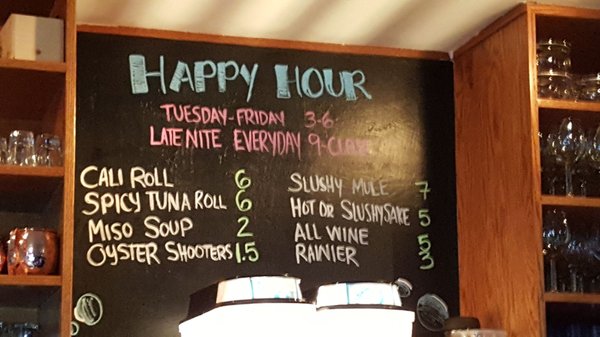 HAPPY HOUR
TUESDAY-FRIDAY 3-6
LATE NITE EVERYDAY 9-CLOSE
CALI ROLL 6
SPICY TUNA ROLL 6
MISO SOUP 2
OYSTER SHOOTERS 1.5
SLUSHY MULE 7
HOT OR SLUSHY SAKE 5
ALL WINE 5
RAINIER 3